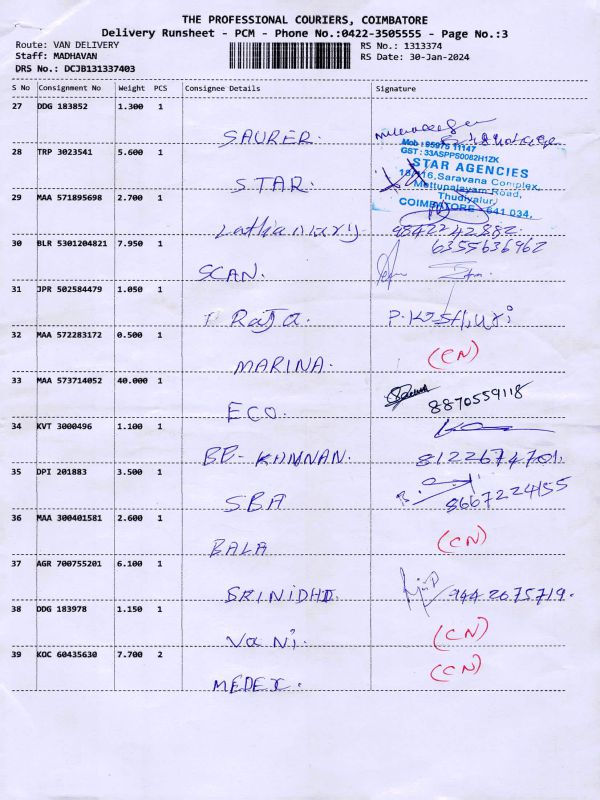 THE PROFESSIONAL COURIERS, COIMBATORE
Delivery Runsheet - PCM - Phone No.:0422-3505555 - Page No.:3
Route: VAN DELIVERY
Staff: MADHAVAN
DRS No.: DCJB131337403
RS No.: 1313374
RS Date: 30-Jan-2024
S No Consignment No Weight PCS Consignee Details Signature
27 DDG 183852 1.300 1
SAURER.
28 TRP 3023541 5.600 1
Mob : 95975 11147
GST : 33ASPPS0082H1ZK
STAR AGENCIES
18/116, Saravana Complex,
Mettupalayam Road,
Thudiyalur,
COIMBATORE - 641 034.
STAR.
29 MAA 571895698 2.700 1
9842242882.
30 BLR 5301204821 7.950 1
6355636962
SCAN.
31 JPR 502584479 1.050 1
Raja.
32 MAA 572283172 0.500 1
MARINA. (CN)
33 MAA 573714052 40.000 1
ECO. 8870559118
34 KVT 3000496 1.100 1
BE-KANNAN. 8122674701.
35 DPI 201883 3.500 1
SBA 8667224155
36 MAA 300401581 2.600 1
BALA (CN)
37 AGR 700755201 6.100 1
SRINIDHI. 9442675719.
38 DDG 183978 1.150 1
VaNi. (CN)
39 KOC 60435630 7.700 2
MEDEX. (CN)